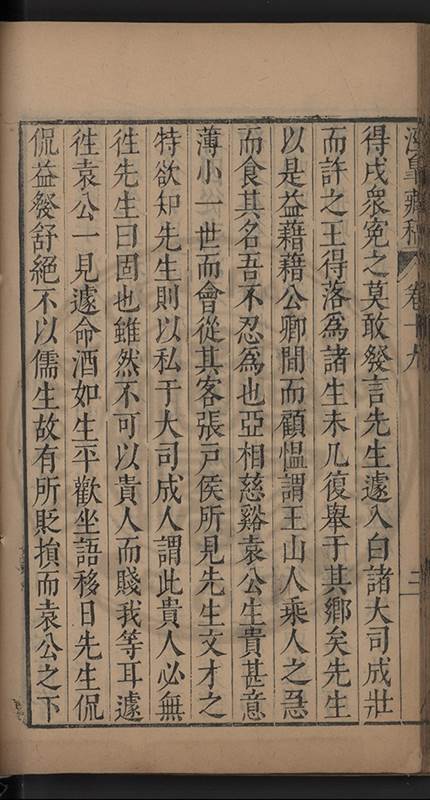 涇臯藏稿 卷十九 三
得戍衆寃之莫敢發言先生遽入白諸大司成壯
而許之王得落爲諸生未几復舉于其鄉矣先生
以是益藉藉公卿間而顧愠謂王山人乘人之急
而食其名吾不忍爲也亞相慈谿袁公生貴甚意
薄小一世而會從其客張戸侯所見先生文才之
特欲知先生則以私于大司成人謂此貴人必無
徃先生曰固也雖然不可以貴人而賤我等耳遽
徃袁公一見遽命酒如生平歡坐語移日先生侃
侃益發舒絕不以儒生故有所貶損而袁公之下